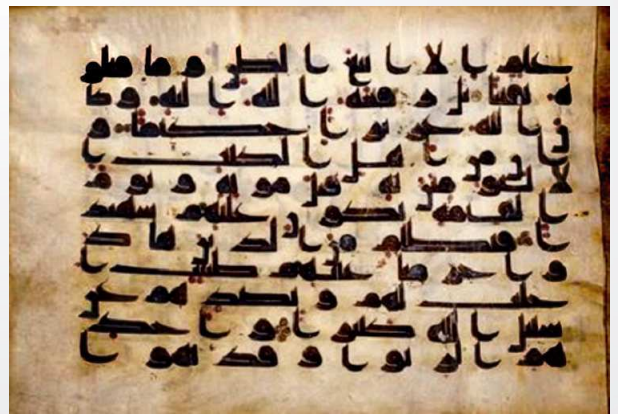 علم الا اتبع الظن وما قتلو
ه يقينا بل رفعه الله اليه وكا
ن الله عزيزا حكيما و
ان من اهل الكتب ا
لا ليومنن به قبل موته ويوم
القيمه يكون عليهم شهيد
ا فبظلم من الذين هاد
وا حرمنا عليهم طيبت ا
حلت لهم وبصدهم عن
سبيل الله كثيرا واخذ
هم الربوا وقد نهوا